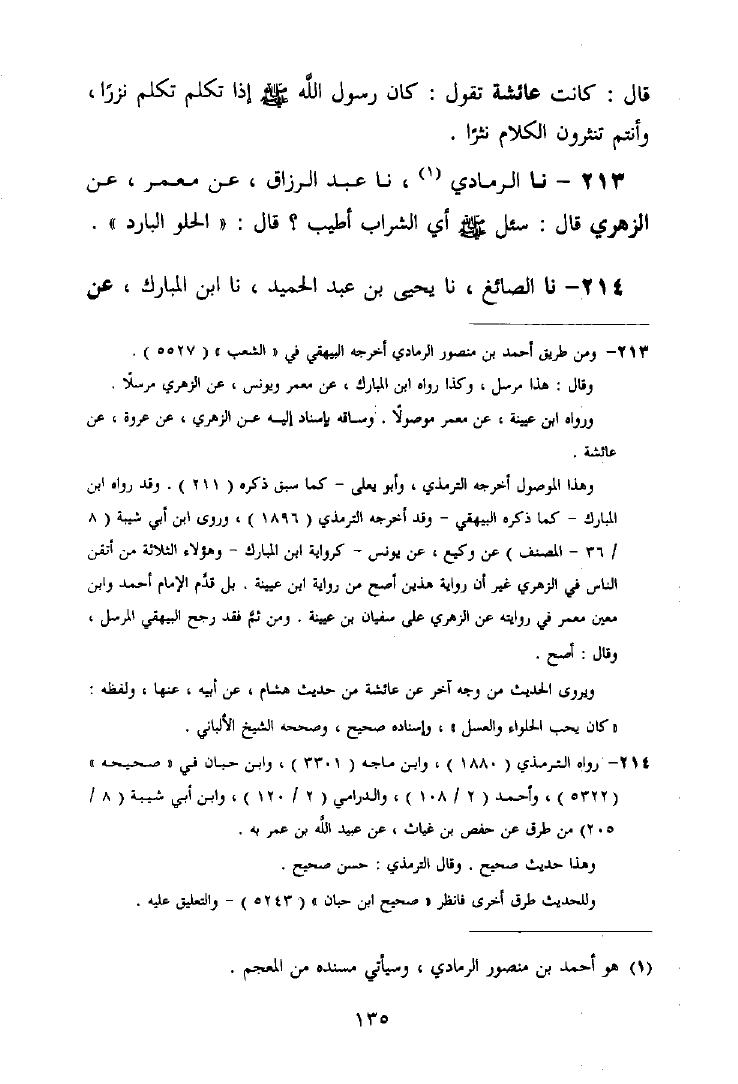 قال : كانت عائشة تقول : كان رسول الله ﷺ إذا تكلم تكلم نزرًا ،
وأنتم تنثرون الكلام نثرًا .
٢١٣ – نا الرمادي (١) ، نا عبد الرزاق ، عن معمر ، عن
الزهري قال : سئل ﷺ أي الشراب أطيب ؟ قال : « الحلو البارد » .
٢١٤– نا الصائغ ، نا يحيى بن عبد الحميد ، نا ابن المبارك ، عن
٢١٣– ومن طريق أحمد بن منصور الرمادي أخرجه البيهقي في « الشعب » ( ٥٥٢٧ ) .
وقال : هذا مرسل ، وكذا رواه ابن المبارك ، عن معمر ويونس ، عن الزهري مرسلًا .
ورواه ابن عيينة ، عن معمر موصولًا . وساقه بإسناد إليه عن الزهري ، عن عروة ، عن
عائشة .
وهذا الموصول أخرجه الترمذي ، وأبو يعلى – كما سبق ذكره ( ٢١١ ) . وقد رواه ابن
المبارك – كما ذكره البيهقي – وقد أخرجه الترمذي ( ١٨٩٦ ) ، وروى ابن أبي شيبة ( ٨
/ ٣٦ – المصنف ) عن وكيع ، عن يونس – كرواية ابن المبارك – وهؤلاء الثلاثة من أتقن
الناس في الزهري غير أن رواية هذين أصح من رواية ابن عيينة . بل قدَّم الإمام أحمد وابن
معين معمر في روايته عن الزهري على سفيان بن عيينة . ومن ثمَّ فقد رجح البيهقي المرسل ،
وقال : أصح .
ويروى الحديث من وجه آخر عن عائشة من حديث هشام ، عن أبيه ، عنها ، ولفظه :
« كان يحب الحلواء والعسل » ، وإسناده صحيح ، وصححه الشيخ الألباني .
٢١٤– رواه الترمذي ( ١٨٨٠ ) ، وابن ماجه ( ٣٣٠١ ) ، وابن حبان في « صحيحه »
( ٥٣٢٢ ) ، وأحمد ( ٢ / ١٠٨ ) ، والدرامي ( ٢ / ١٢٠ ) ، وابن أبي شيبة ( ٨ /
٢٠٥) من طرق عن حفص بن غياث ، عن عبيد الله بن عمر به .
وهذا حديث صحيح . وقال الترمذي : حسن صحيح .
وللحديث طرق أخرى فانظر « صحيح ابن حبان » ( ٥٢٤٣ ) – والتعليق عليه .
(١) هو أحمد بن منصور الرمادي ، وسيأتي مسنده من المعجم .
١٣٥